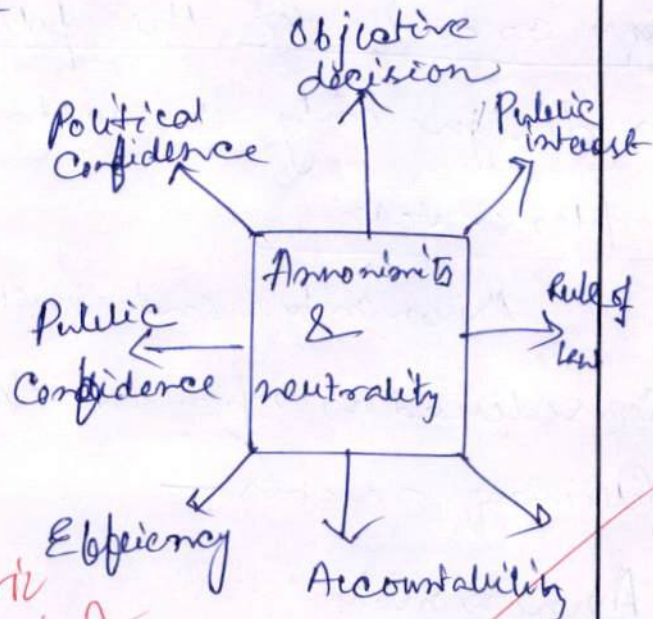 Objective
decision
Political
Confidence
Public
interest
Annonimity
&
neutrality
Rule of
law
Public
Confidence
Efficiency
Accountability